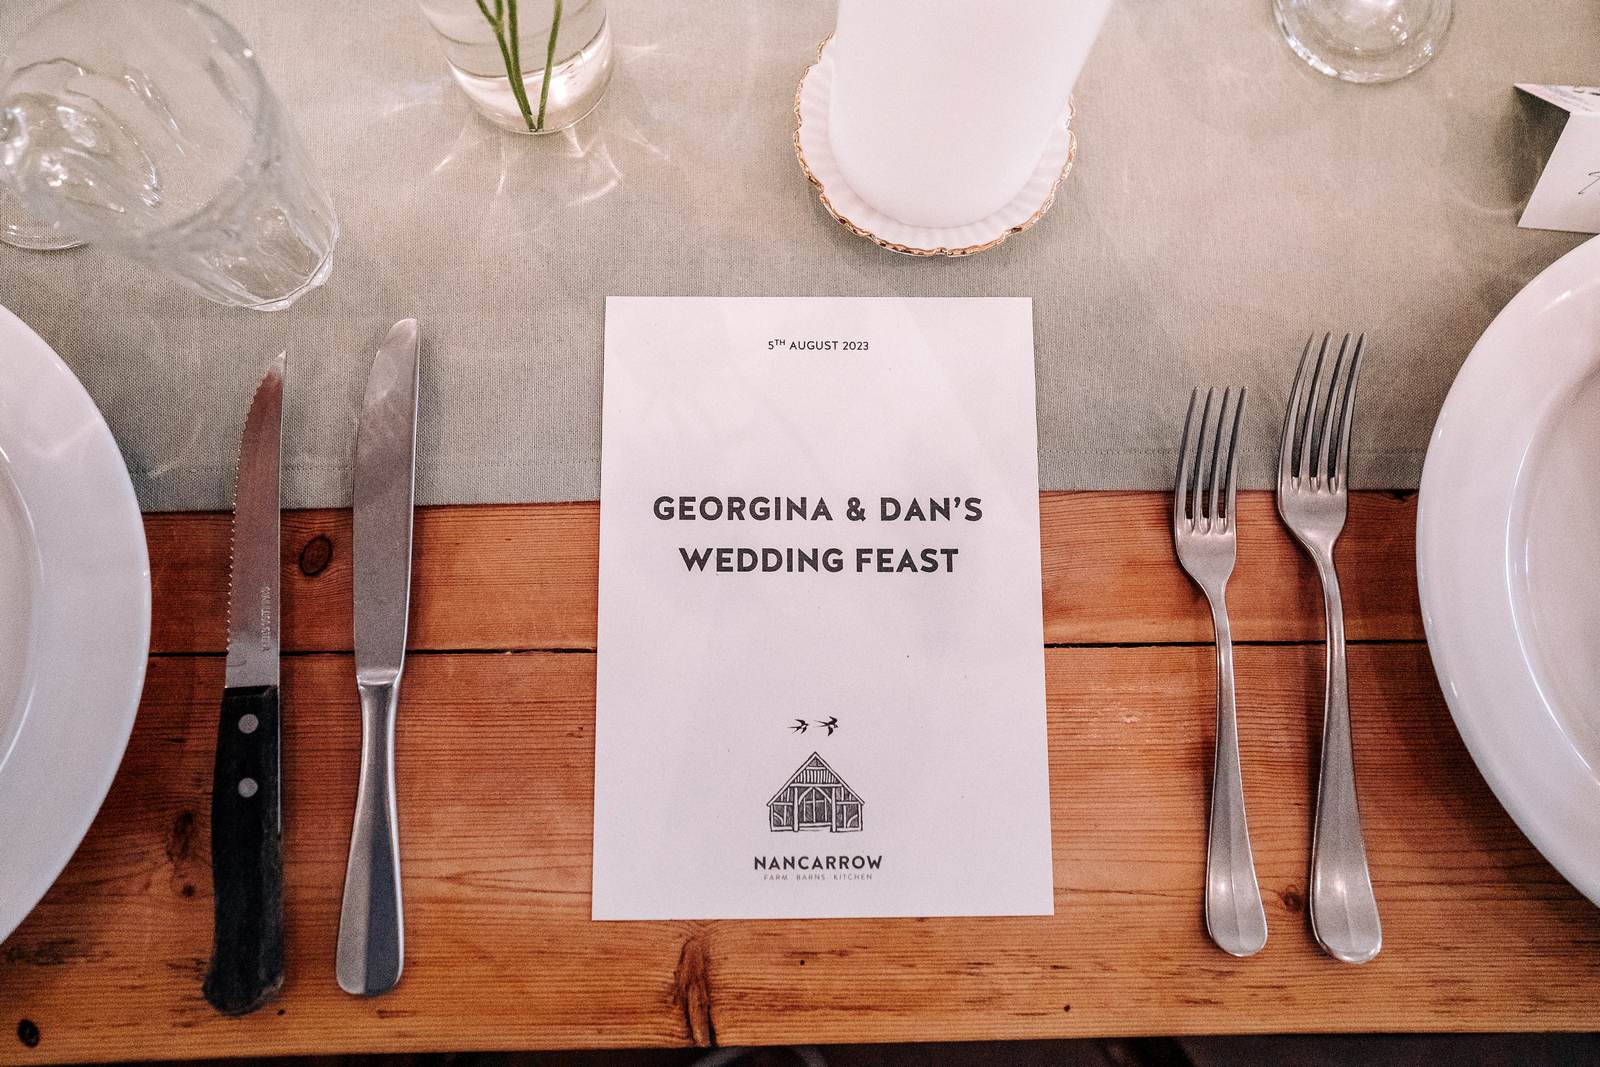 5TH AUGUST 2023
GEORGINA & DAN'S
WEDDING FEAST
NANCARROW
FARM BARNS KITCHEN